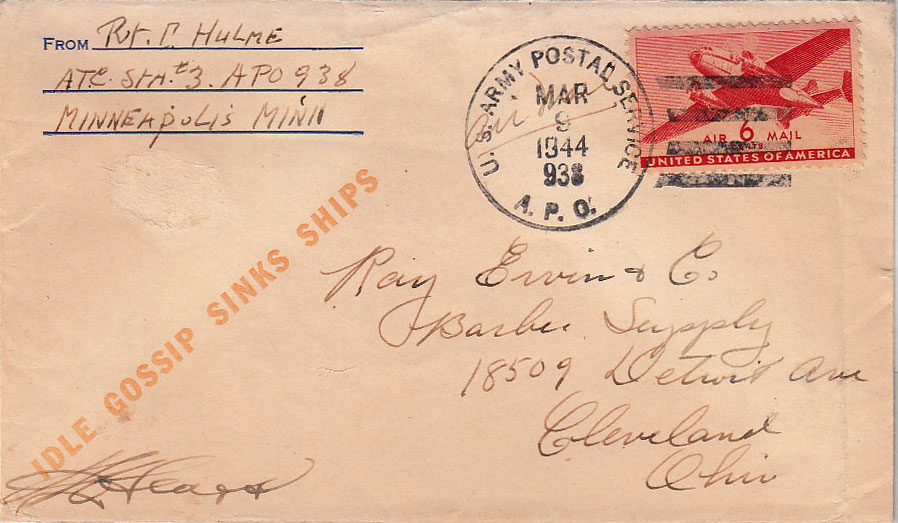 FROM Pvt. C HULME
ATC. STA. #3. APO 938
MINNEAPOLIS MINN
U. S. ARMY POSTAL SERVICE
MAR
9
1944
938
A. P. O.
Air Mail
AIR 6 MAIL
CENTS
UNITED STATES OF AMERICA
IDLE GOSSIP SINKS SHIPS
Ray Ervin & Co
Barber Supply
18509 Detroit Ave
Cleveland
Ohio